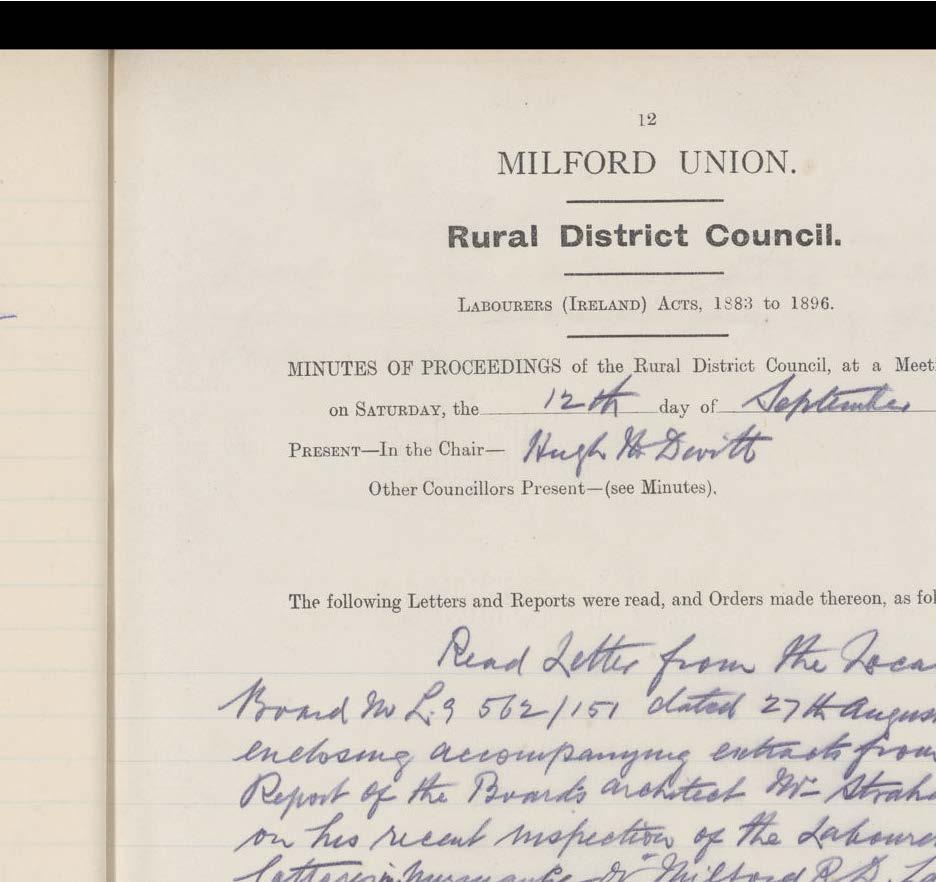 12
MILFORD UNION.
Rural District Council.
LABOURERS (IRELAND) ACTS, 1883 to 1896.
MINUTES OF PROCEEDINGS of the Rural District Council, at a Meet
on SATURDAY, the 12th day of September
PRESENT—In the Chair— Hugh McDevitt
Other Councillors Present—(see Minutes).
The following Letters and Reports were read, and Orders made thereon, as fol
Read Letter from the Loca
Board No L.9 562/151 dated 27th Augus
enclosing accompanying extracts from
Report of the Boards architect Mr Straha
on his recent inspection of the Laboure
Milford R. D.